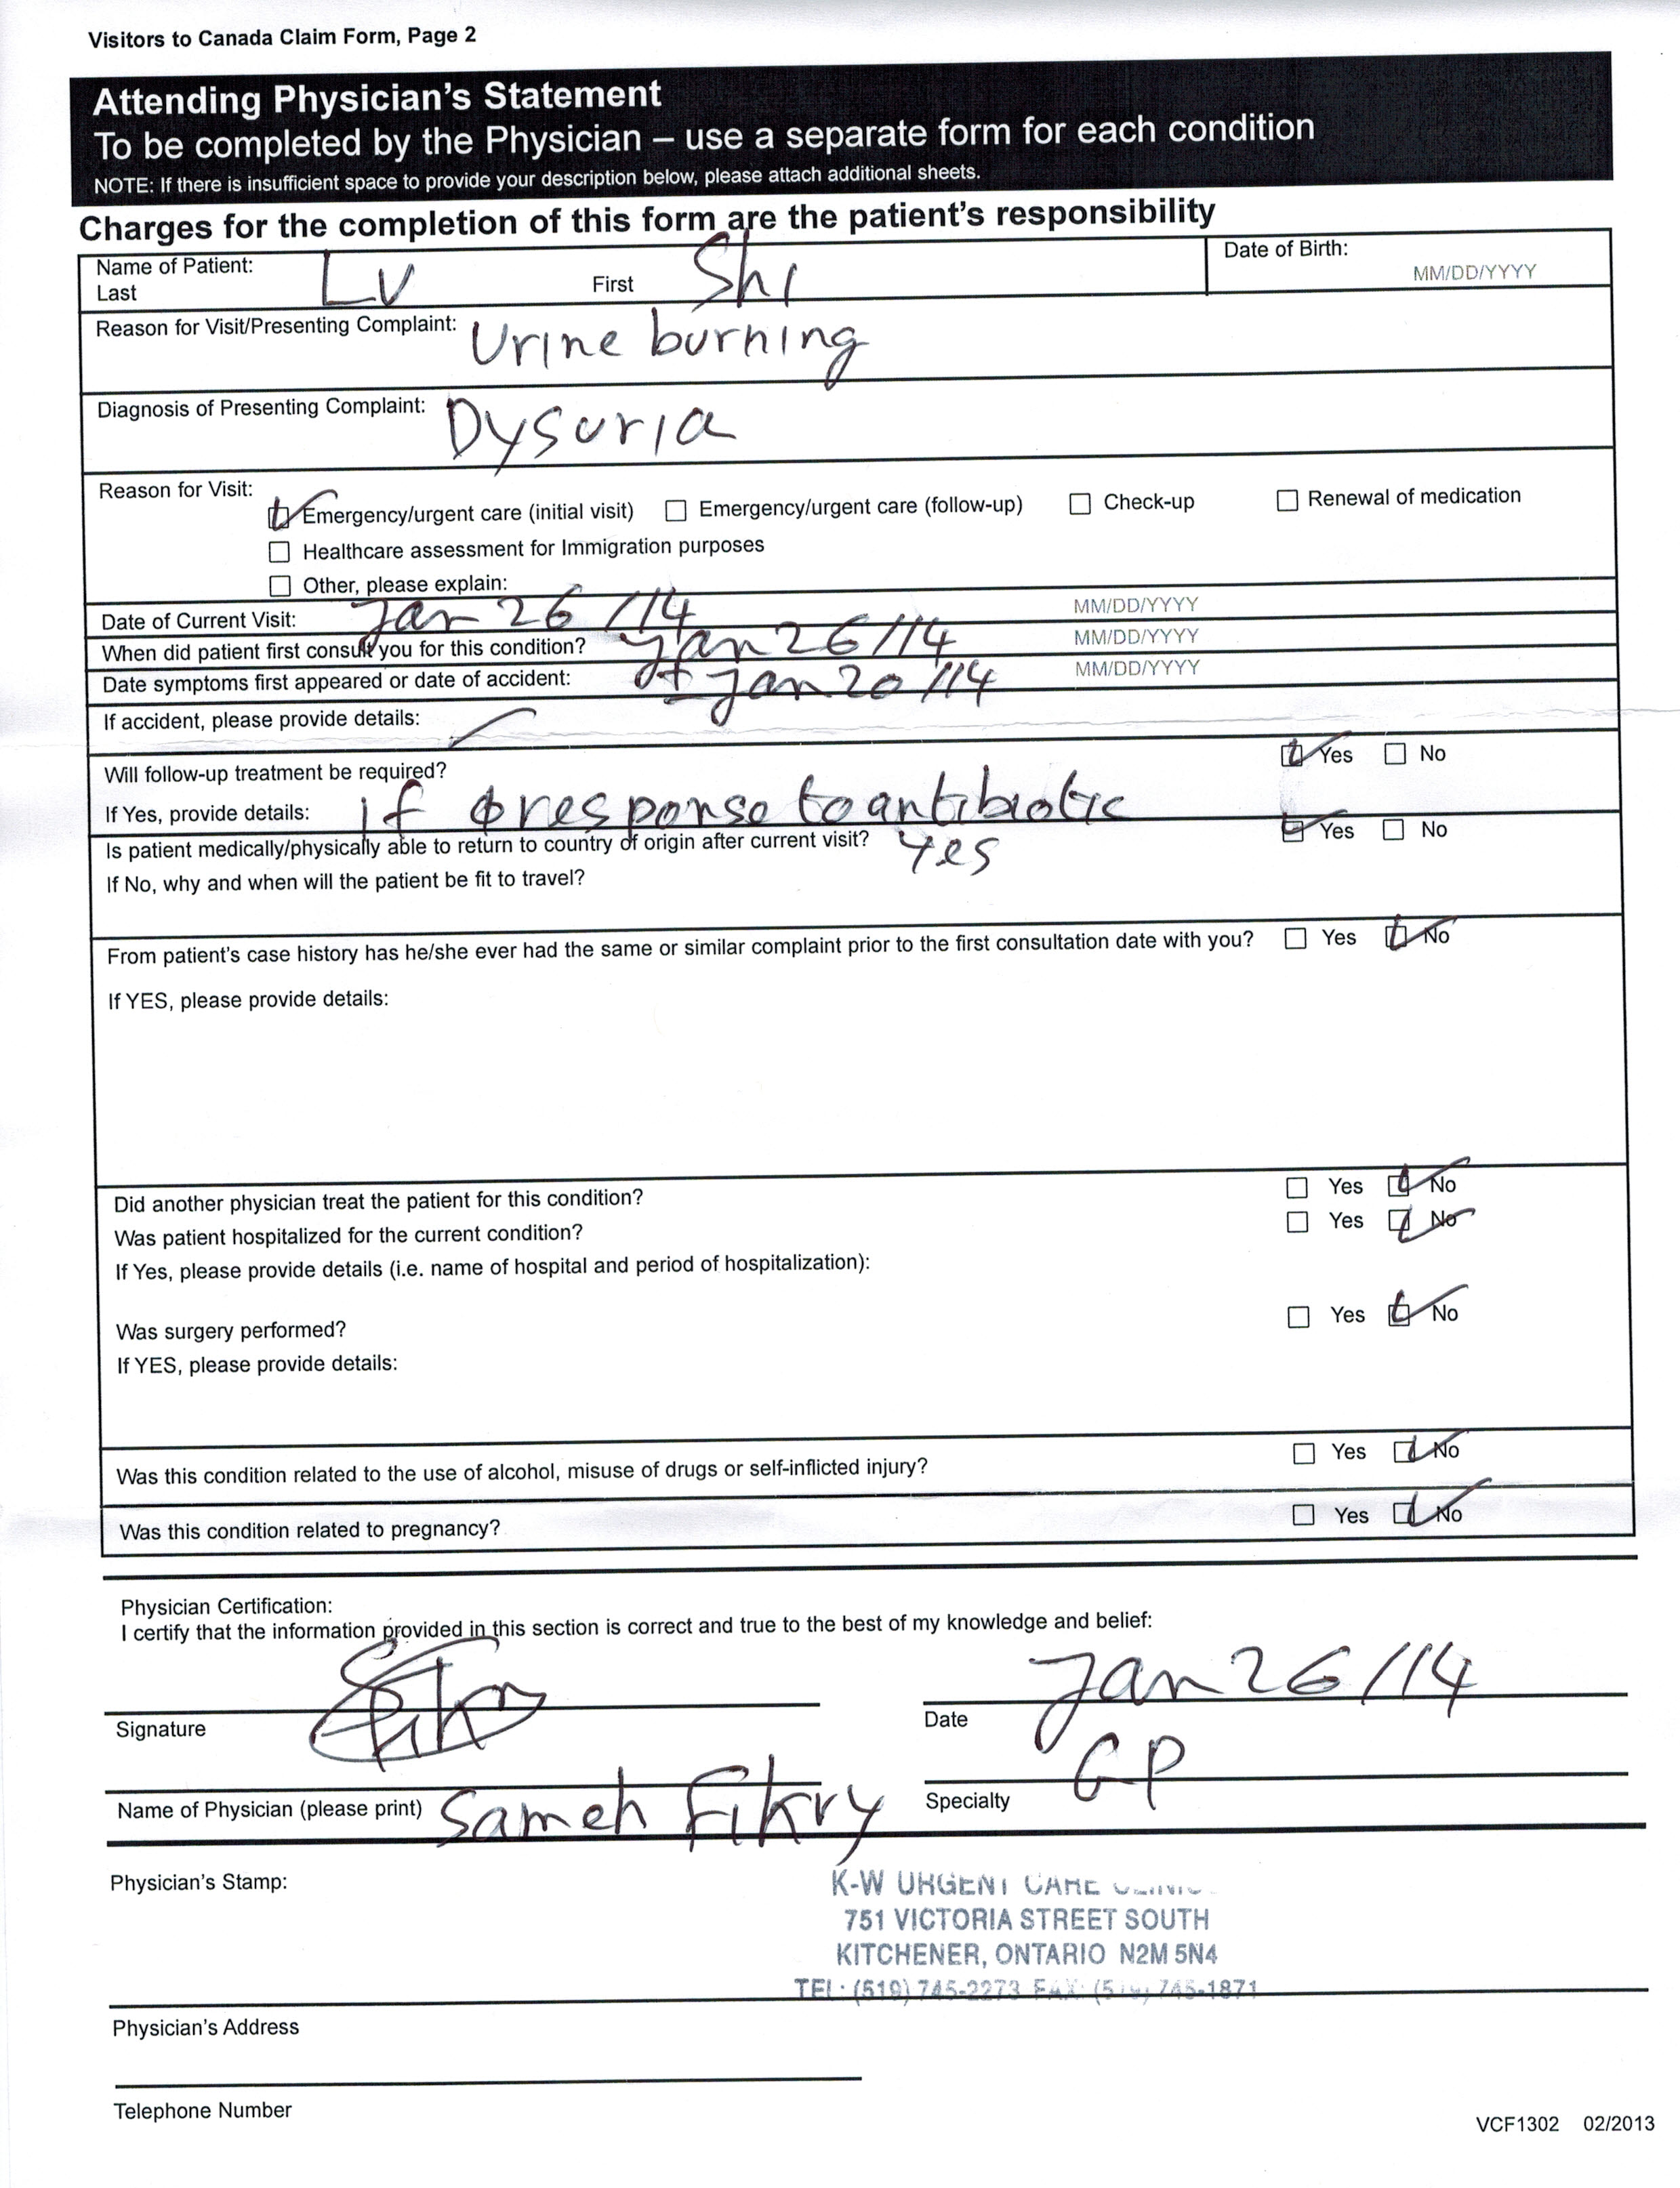 Visitors to Canada Claim Form, Page 2
Attending Physician's Statement
To be completed by the Physician – use a separate form for each condition
NOTE: If there is insufficient space to provide your description below, please attach additional sheets.
Charges for the completion of this form are the patient's responsibility
Name of Patient: Last Lv First Shi Date of Birth: MM/DD/YYYY
Reason for Visit/Presenting Complaint: Urine burning
Diagnosis of Presenting Complaint: Dysuria
Reason for Visit:
Emergency/urgent care (initial visit) Emergency/urgent care (follow-up) Check-up Renewal of medication
Healthcare assessment for Immigration purposes
Other, please explain:
Date of Current Visit: Jan 26 /14 MM/DD/YYYY
When did patient first consult you for this condition? Jan 26/14 MM/DD/YYYY
Date symptoms first appeared or date of accident: Jan 20/14 MM/DD/YYYY
If accident, please provide details:
Will follow-up treatment be required? Yes No
If Yes, provide details: if φ response to antibiotic
Is patient medically/physically able to return to country of origin after current visit? Yes Yes No
If No, why and when will the patient be fit to travel?
From patient's case history has he/she ever had the same or similar complaint prior to the first consultation date with you? Yes No
If YES, please provide details:
Did another physician treat the patient for this condition? Yes No
Was patient hospitalized for the current condition? Yes No
If Yes, please provide details (i.e. name of hospital and period of hospitalization):
Was surgery performed? Yes No
If YES, please provide details:
Was this condition related to the use of alcohol, misuse of drugs or self-inflicted injury? Yes No
Was this condition related to pregnancy? Yes No
Physician Certification:
I certify that the information provided in this section is correct and true to the best of my knowledge and belief:
Signature Date Jan 26/14
Name of Physician (please print) Sameh Fikry Specialty GP
Physician's Stamp:
K-W URGENT CARE CLINIC
751 VICTORIA STREET SOUTH
KITCHENER, ONTARIO N2M 5N4
TEL: (519) 745-2273 FAX: (519) 745-1871
Physician's Address
Telephone Number
VCF1302 02/2013